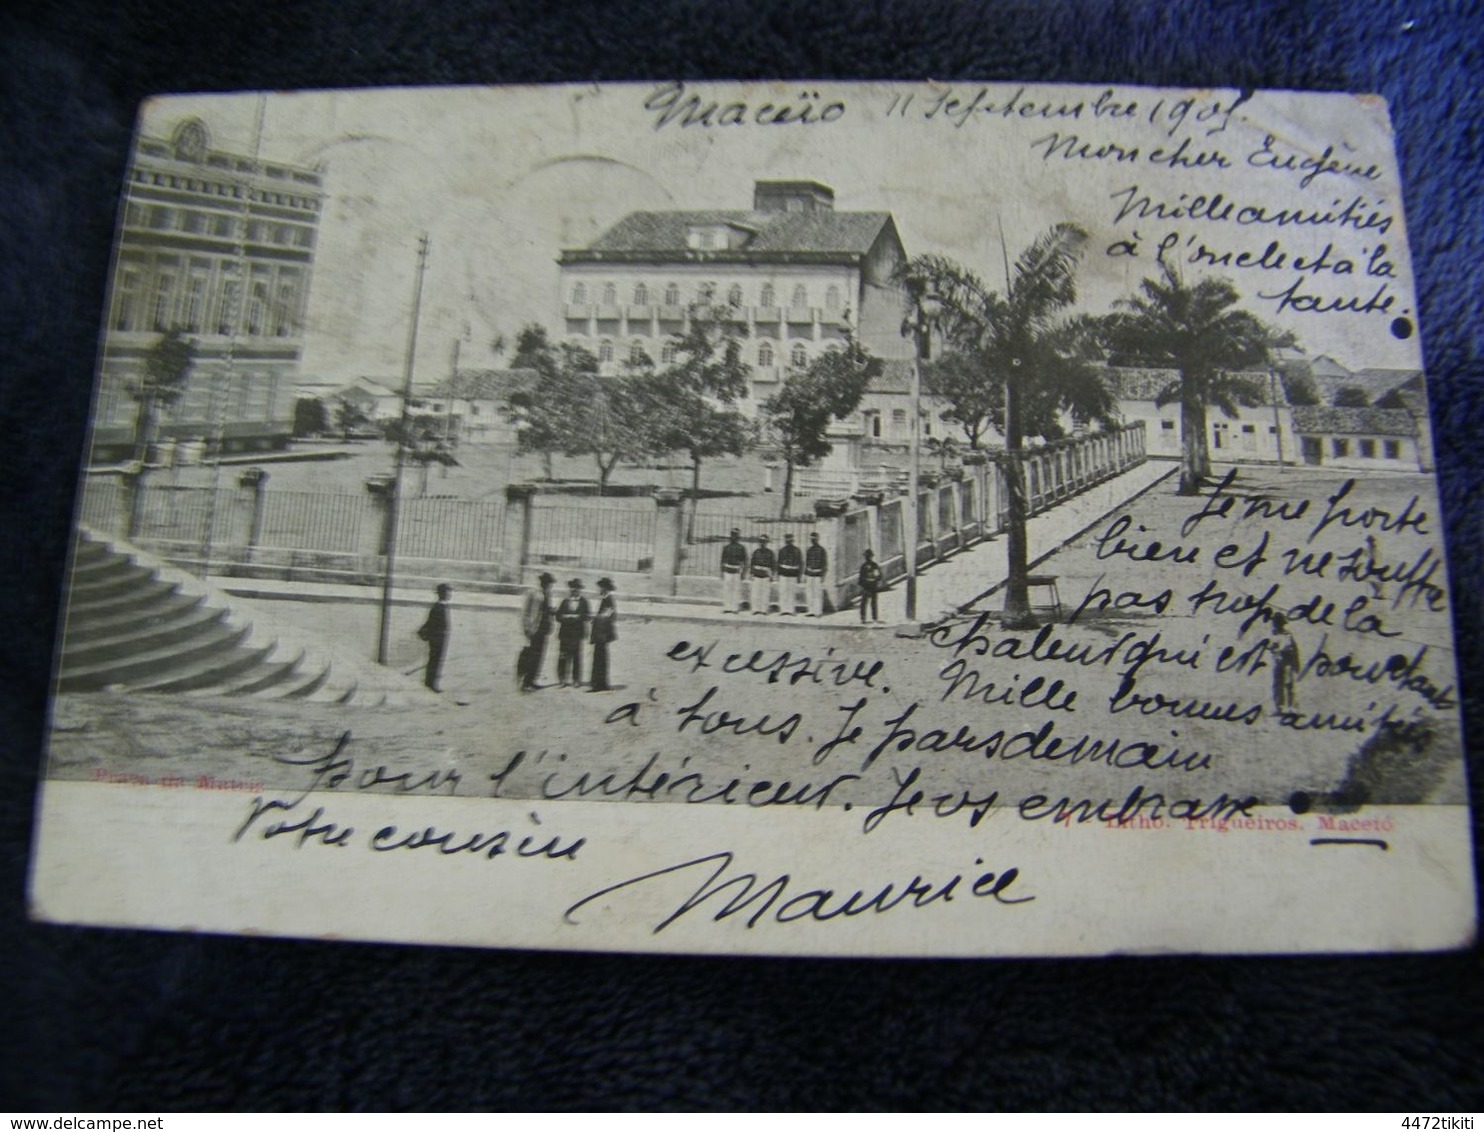 Maceïo 11 Septembre 1905.
Mon cher Eugène
Mille amitiés
à l'oncle et à la
tante.
Je me porte
bien et ne souffre
pas trop de la
chaleur qui est pourtant
excessive. Mille bonnes amitiés
à tous. Je pars demain
pour l'intérieur. Je vs embrasse
Votre cousin
Maurice
Praça da Matriz
Litho. Trigueiros. Maceió
4472tikiti
delcampe.net